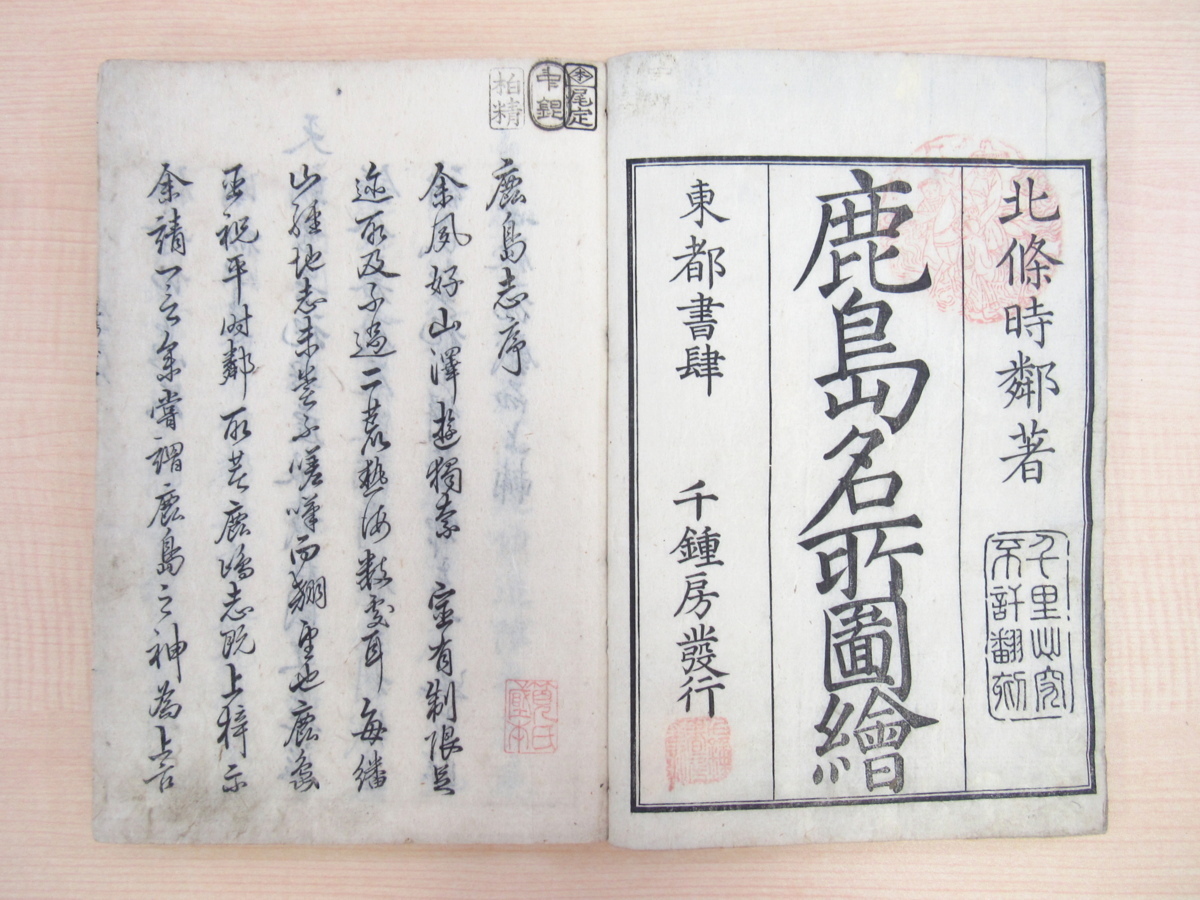 北條時鄰著
千里必究
不許翻刻
鹿島名所圖繪
東都書肆 千鍾房發行
尾定
柏精
鹿島志序
余夙好山澤遊獨奈 室有制限足
迹所及不過二荒熱海數處耳每繙
山經地志未嘗不嗟嘆而翹望也鹿島
祝平時鄰所著鹿島志既上梓示
余請一言余嘗謂鹿島之神為